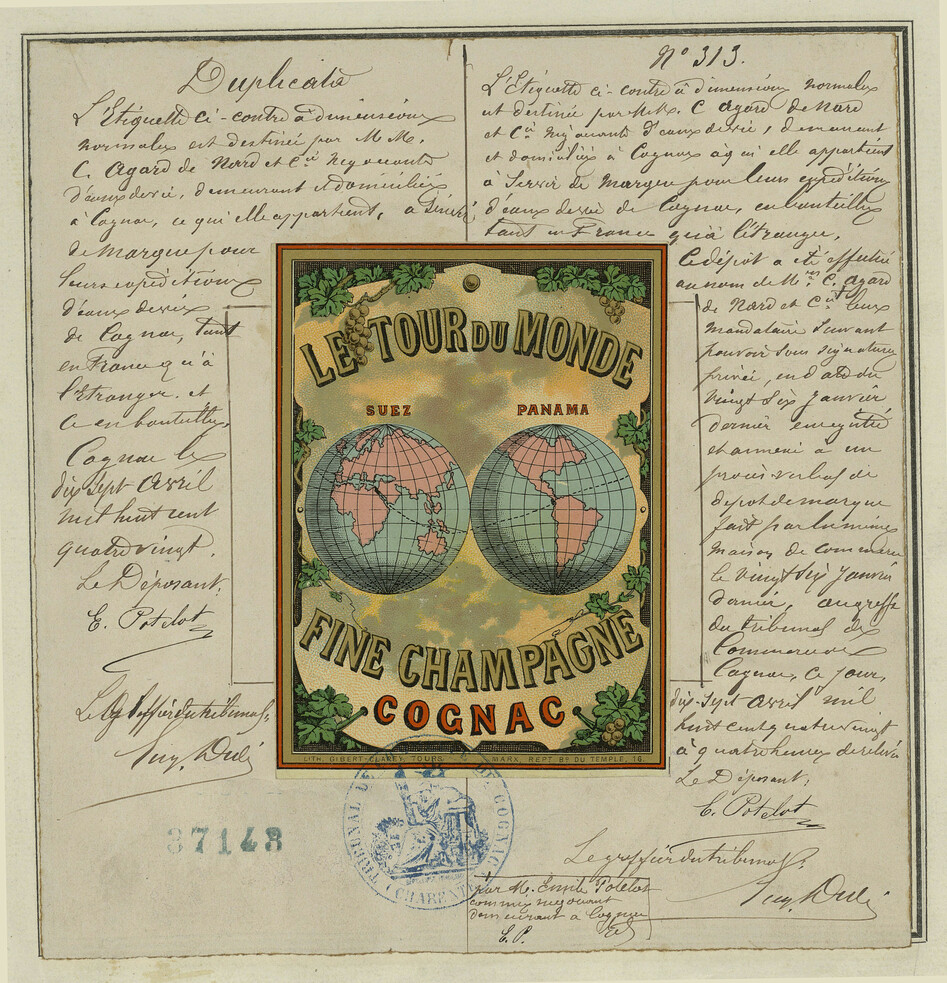 Duplicata
L'Etiquette ci-contre à dimensions
normales est destinée par M M.
C. Agard de Nard et Cie Négociants
d'eaux de vie, demeurant et domiciliés
à Cognac, ce qui elle appartient, à Servir
de marque pour
leurs expéditions
d'eaux de vie
de Cognac, tant
en France qu'à
l'Etranger. et
Ce en bouteilles,
Cognac le
dix sept Avril
mil huit cent
quatre vingt.
Le Déposant,
E. Potelot
Le Greffier du tribunal,
N° 313.
L'Etiquette ci-contre à dimensions normales
est destinée par M.M. C. Agard de Nard
et Cie Négociants d'eaux de vie, demeurant
et domiciliés à Cognac à qui elle appartient
à Servir de marque pour leurs expéditions
d'eaux de vie de Cognac, en bouteilles
tant en France qu'à l'étranger,
Le dépôt a été effectué
au nom de Mrs C. Agard
de Nard et Cie leur
mandataire Suivant
pouvoir sous signature
privée, en date du
vingt Six Janvier
dernier enregistré
et annexé à un
procès-verbal de
dépôt de marque
fait par la même
Maison de commerce
le vingt Six Janvier
dernier, au greffe
du tribunal de
Commerce de
Cognac, ce jour,
dix-Sept Avril mil
huit cent quatre vingt
à quatre heures de relevée
Le Déposant,
E. Potelot
Le greffier du tribunal,
LE TOUR DU MONDE
SUEZ PANAMA
FINE CHAMPAGNE
COGNAC
LITH. GIBERT-CLAREY TOURS MARX, REPT. Bd DU TEMPLE, 16.
37143
TRIBUNAL DE COGNAC
(CHARENTE)
par M. Emile Potelot
commis négociant
demeurant à Cognac
E. P.